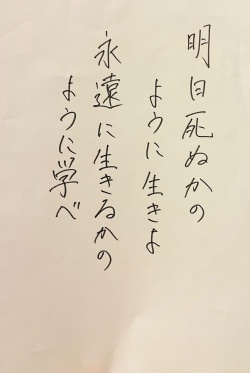 明日死ぬかの
ように生きよ
永遠に生きるかの
ように学べ